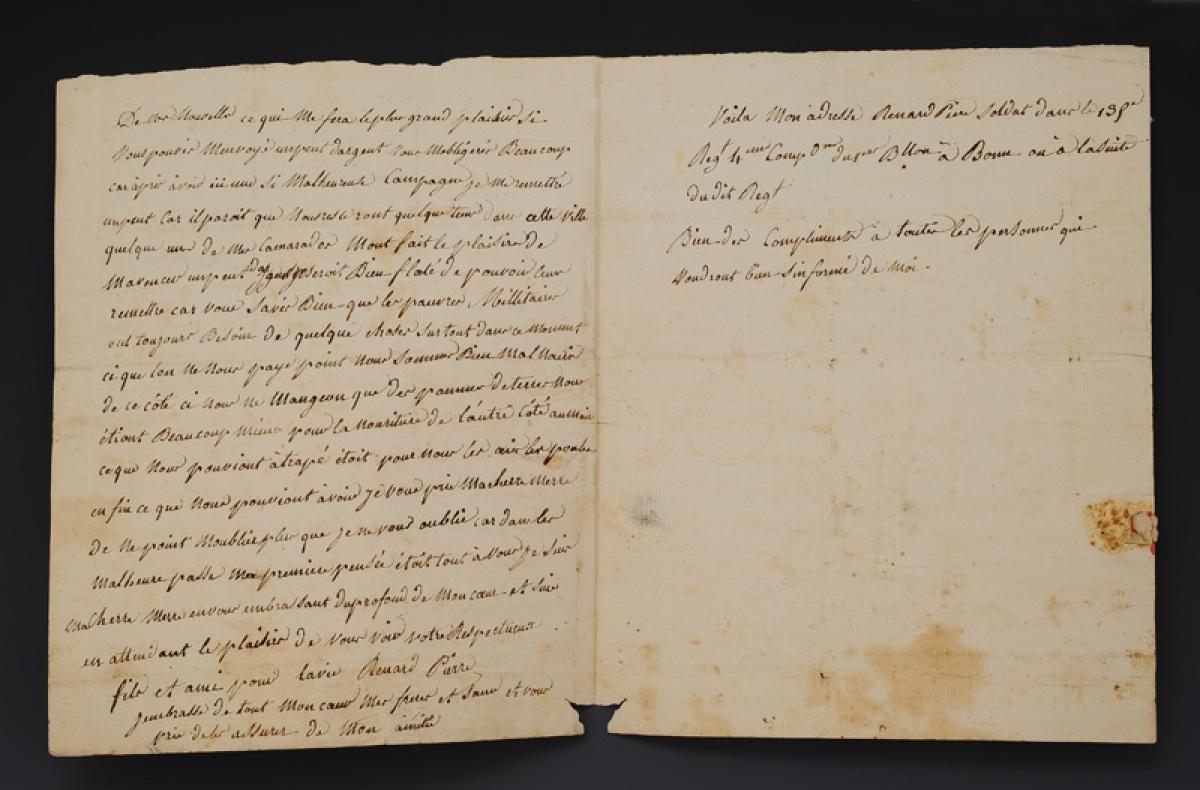 De vos Nouvelle ce qui me fera le plus grand plaisire Si
vous pouvier Menvoyé unpeut dargent vous Mobligérér Beaucoup
car àpré àvoir une Si Malheureuse Campagne je me remettré
unpeut Car il paroit que Nous resteront quelque tems dans cette Ville
quelque uns de Mes Camarades Mont fait le plaisire de
Mavencer unpeut Bien flaté de pouvoir leur
remettre car vous Savér Bien que les pauvres Millitaire
ont toujours Besoin de quelque choses surtout dans ce Moment
ci que lon ne Nous paye point Nous Sommes Bien Mal
de ce côté ci nous ne Mangeon que des pommes deterres Nous
étiont Beaucoup Mieux pour la Nouriture de l'autre Côté au Moin
ce que Nous pouviont àtrapé étoit pour Nous les les poules
en fin ce que Nous pouviont àvoir je vous prie Macherre Merre
de Ne point Moublié plus que je ne vous oublie car dans les
Malheure passe Ma premiere pensée étoit tout à vous je Suis
Macherre Merre en vous embrassant du profond de Mon cœur et Suis
en attendant le plaisire de vous voir votre Respectueux
fils et ami pour lavie Renard Pierre
Jembrasse de tout Mon cœur Mes freres et Sœur et vous
prie deles assurer de Mon àmitié
Voila Mon àdresse Renard Pierre Soldat dans le 135e
Regt 4eme Comp du 1er Bllon à Bonne ou à la Suite
du dit Regt
Bien des Compliments à toutes les personnes qui
voudront bien sinformé de Moi.